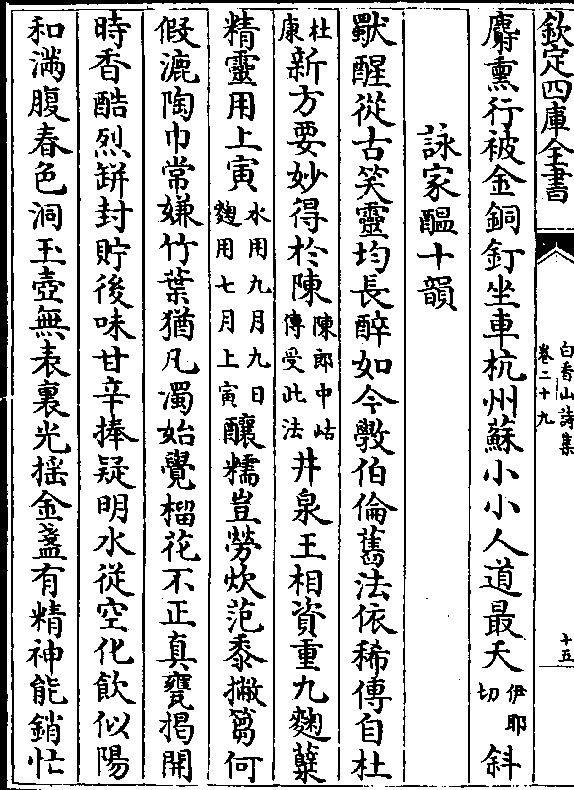 欽定四庫全書
白香山詩集
卷二十九
十五
麝熏行被金銅釘坐車杭州蘇小小人道最夭伊耶切斜
詠家醖十韻
獸醒從古笑靈均長醉如今斆伯倫舊法依稀傳自杜
杜康新方要妙得於陳陳郎中岵傳受此法井泉王相資重九麴糵
精靈用上寅水用九月九日麴用七月上寅釀糯豈勞炊范黍撇篘何
假漉陶巾常嫌竹葉猶凡濁始覺榴花不正真甕揭開
時香酷烈缾封貯後味甘辛捧疑明水從空化飲似陽
和滿腹春色洞玉壺無表裏光揺金盞有精神能銷忙